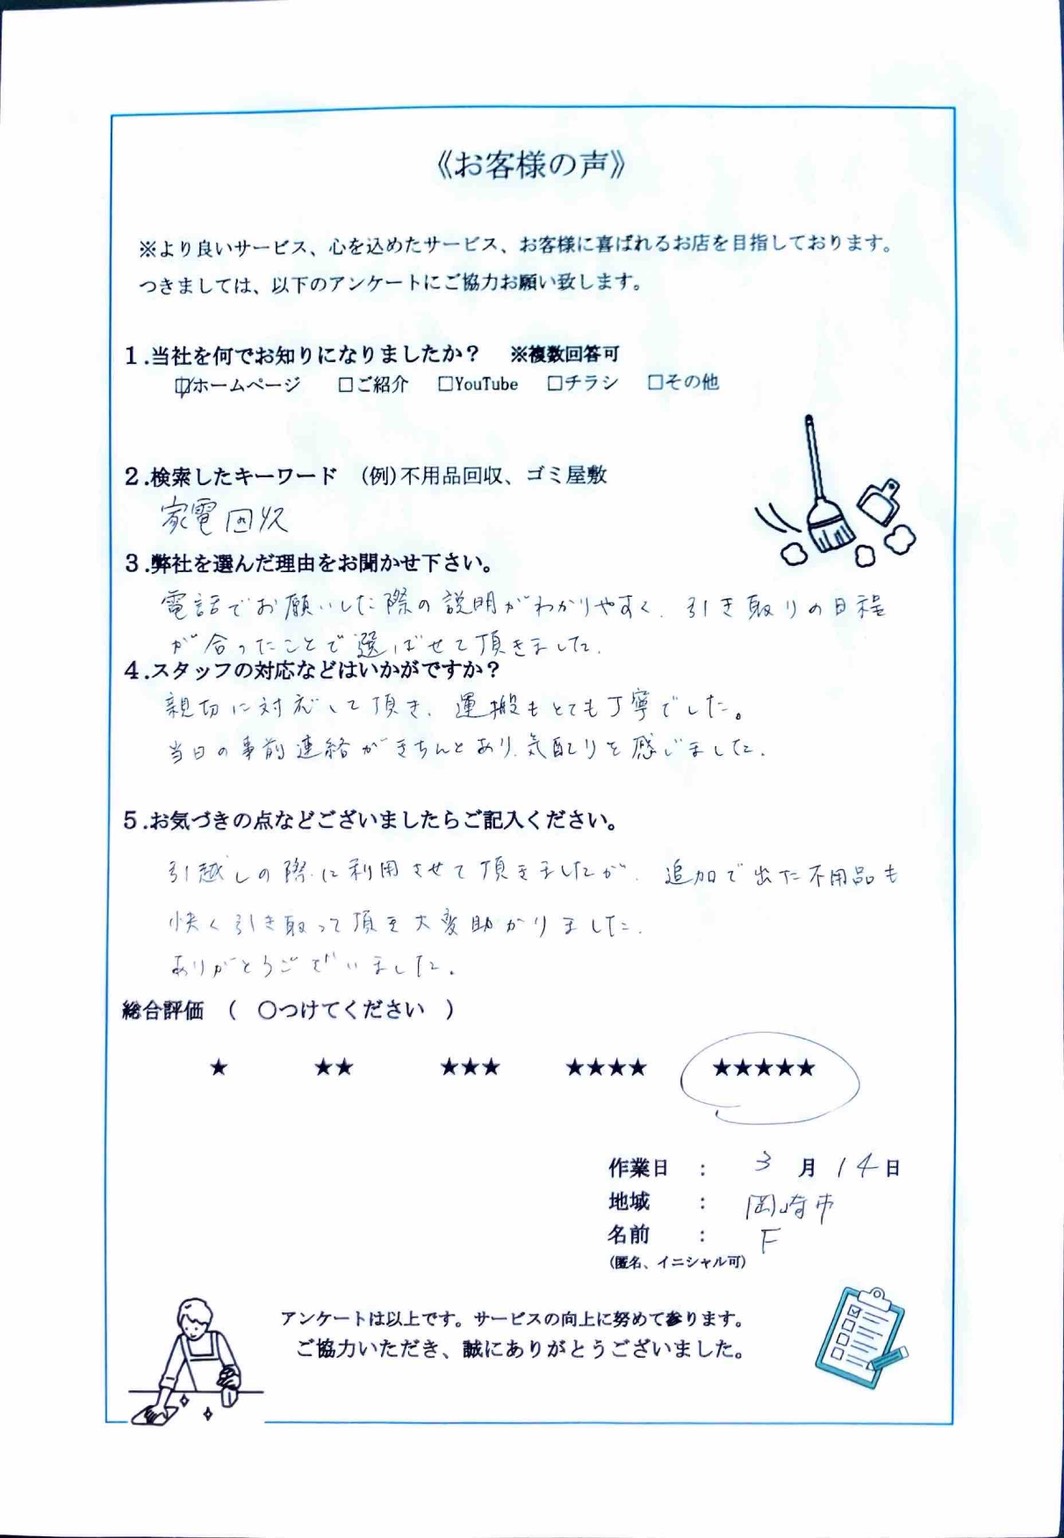 《お客様の声》
※より良いサービス、心を込めたサービス、お客様に喜ばれるお店を目指しております。
つきましては、以下のアンケートにご協力お願い致します。
1.当社を何でお知りになりましたか？　※複数回答可
☑ホームページ　□ご紹介　□YouTube　□チラシ　□その他
2.検索したキーワード　(例)不用品回収、ゴミ屋敷
家電回収
3.弊社を選んだ理由をお聞かせ下さい。
電話でお願いした際の説明がわかりやすく、引き取りの日程
が合ったことで選ばせて頂きました。
4.スタッフの対応などはいかがですか？
親切に対応して頂き、運搬もとても丁寧でした。
当日の事前連絡がきちんとあり、気配りを感じました。
5.お気づきの点などございましたらご記入ください。
引越しの際に利用させて頂きましたが、追加で出た不用品も
快く引き取って頂き大変助かりました。
ありがとうございました。
総合評価　(　○つけてください　)
★　★★　★★★　★★★★　★★★★★
作業日　：　3月14日
地域　：　岡崎市
名前　：　F
(匿名、イニシャル可)
アンケートは以上です。サービスの向上に努めて参ります。
ご協力いただき、誠にありがとうございました。